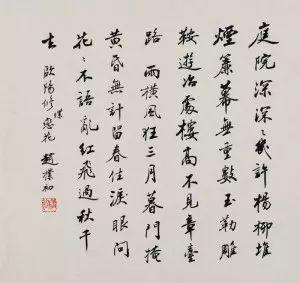 庭院深深〻幾許楊柳堆
煙簾幕無重數玉勒雕
鞍遊冶處樓高不見章臺
路 雨橫風狂三月暮門掩
黃昏無計留春住淚眼問
花〻不語亂紅飛過秋千
去 歐陽修蝶恋花 趙樸初